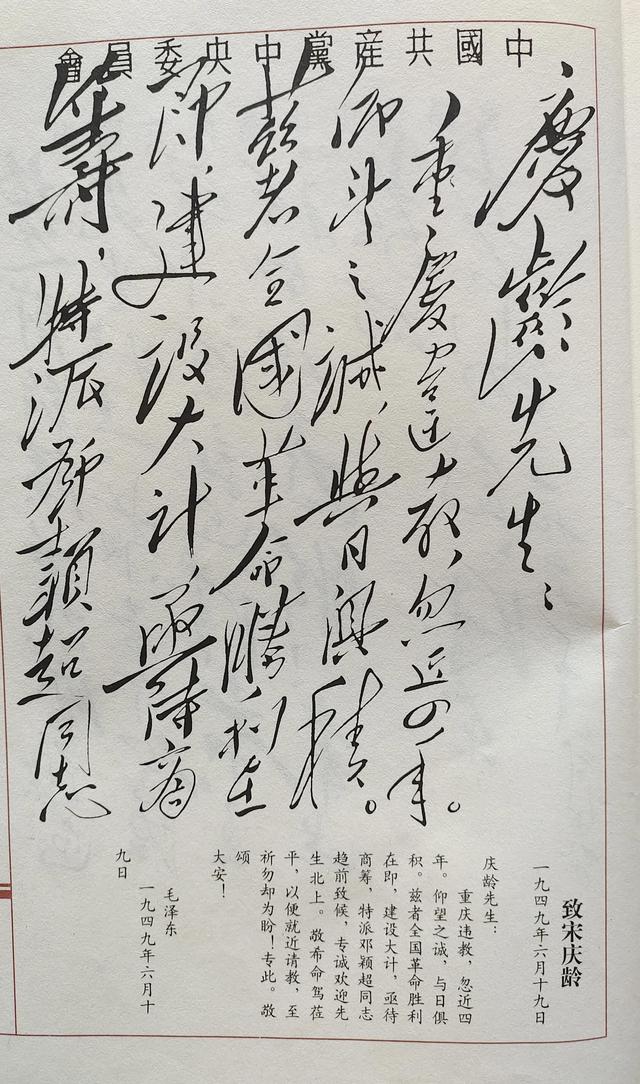 中國共産黨中央委員會
慶齡先生：
重慶違教，忽近四年。
仰望之誠，與日俱積。
兹者全國革命勝利在
即，建設大計，亟待商
籌，特派鄧穎超同志
致宋庆龄
一九四九年六月十九日
庆龄先生：
重庆违教，忽近四
年。仰望之诚，与日俱
积。兹者全国革命胜利
在即，建设大计，亟待
商筹，特派邓颖超同志
趋前致候，专诚欢迎先
生北上。敬希命驾莅
平，以便就近请教，至
祈勿却为盼！专此。敬
颂
大安！
毛泽东
一九四九年六月十
九日